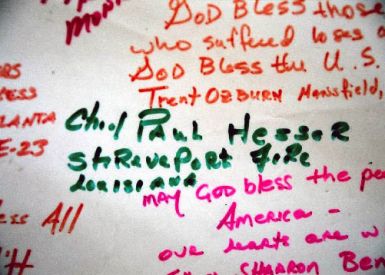 God Bless those
who suffered loses o
God Bless the U.S.
Trent OZBURN Mansfield,
ERS
ESS
LANTA
E-23
Chief PAUL Hesser
SHREVEPORT FIRE
LOUISIANA
MAY GOD bless the pe
America -
our hearts are w
ess All
SHARRON Ben